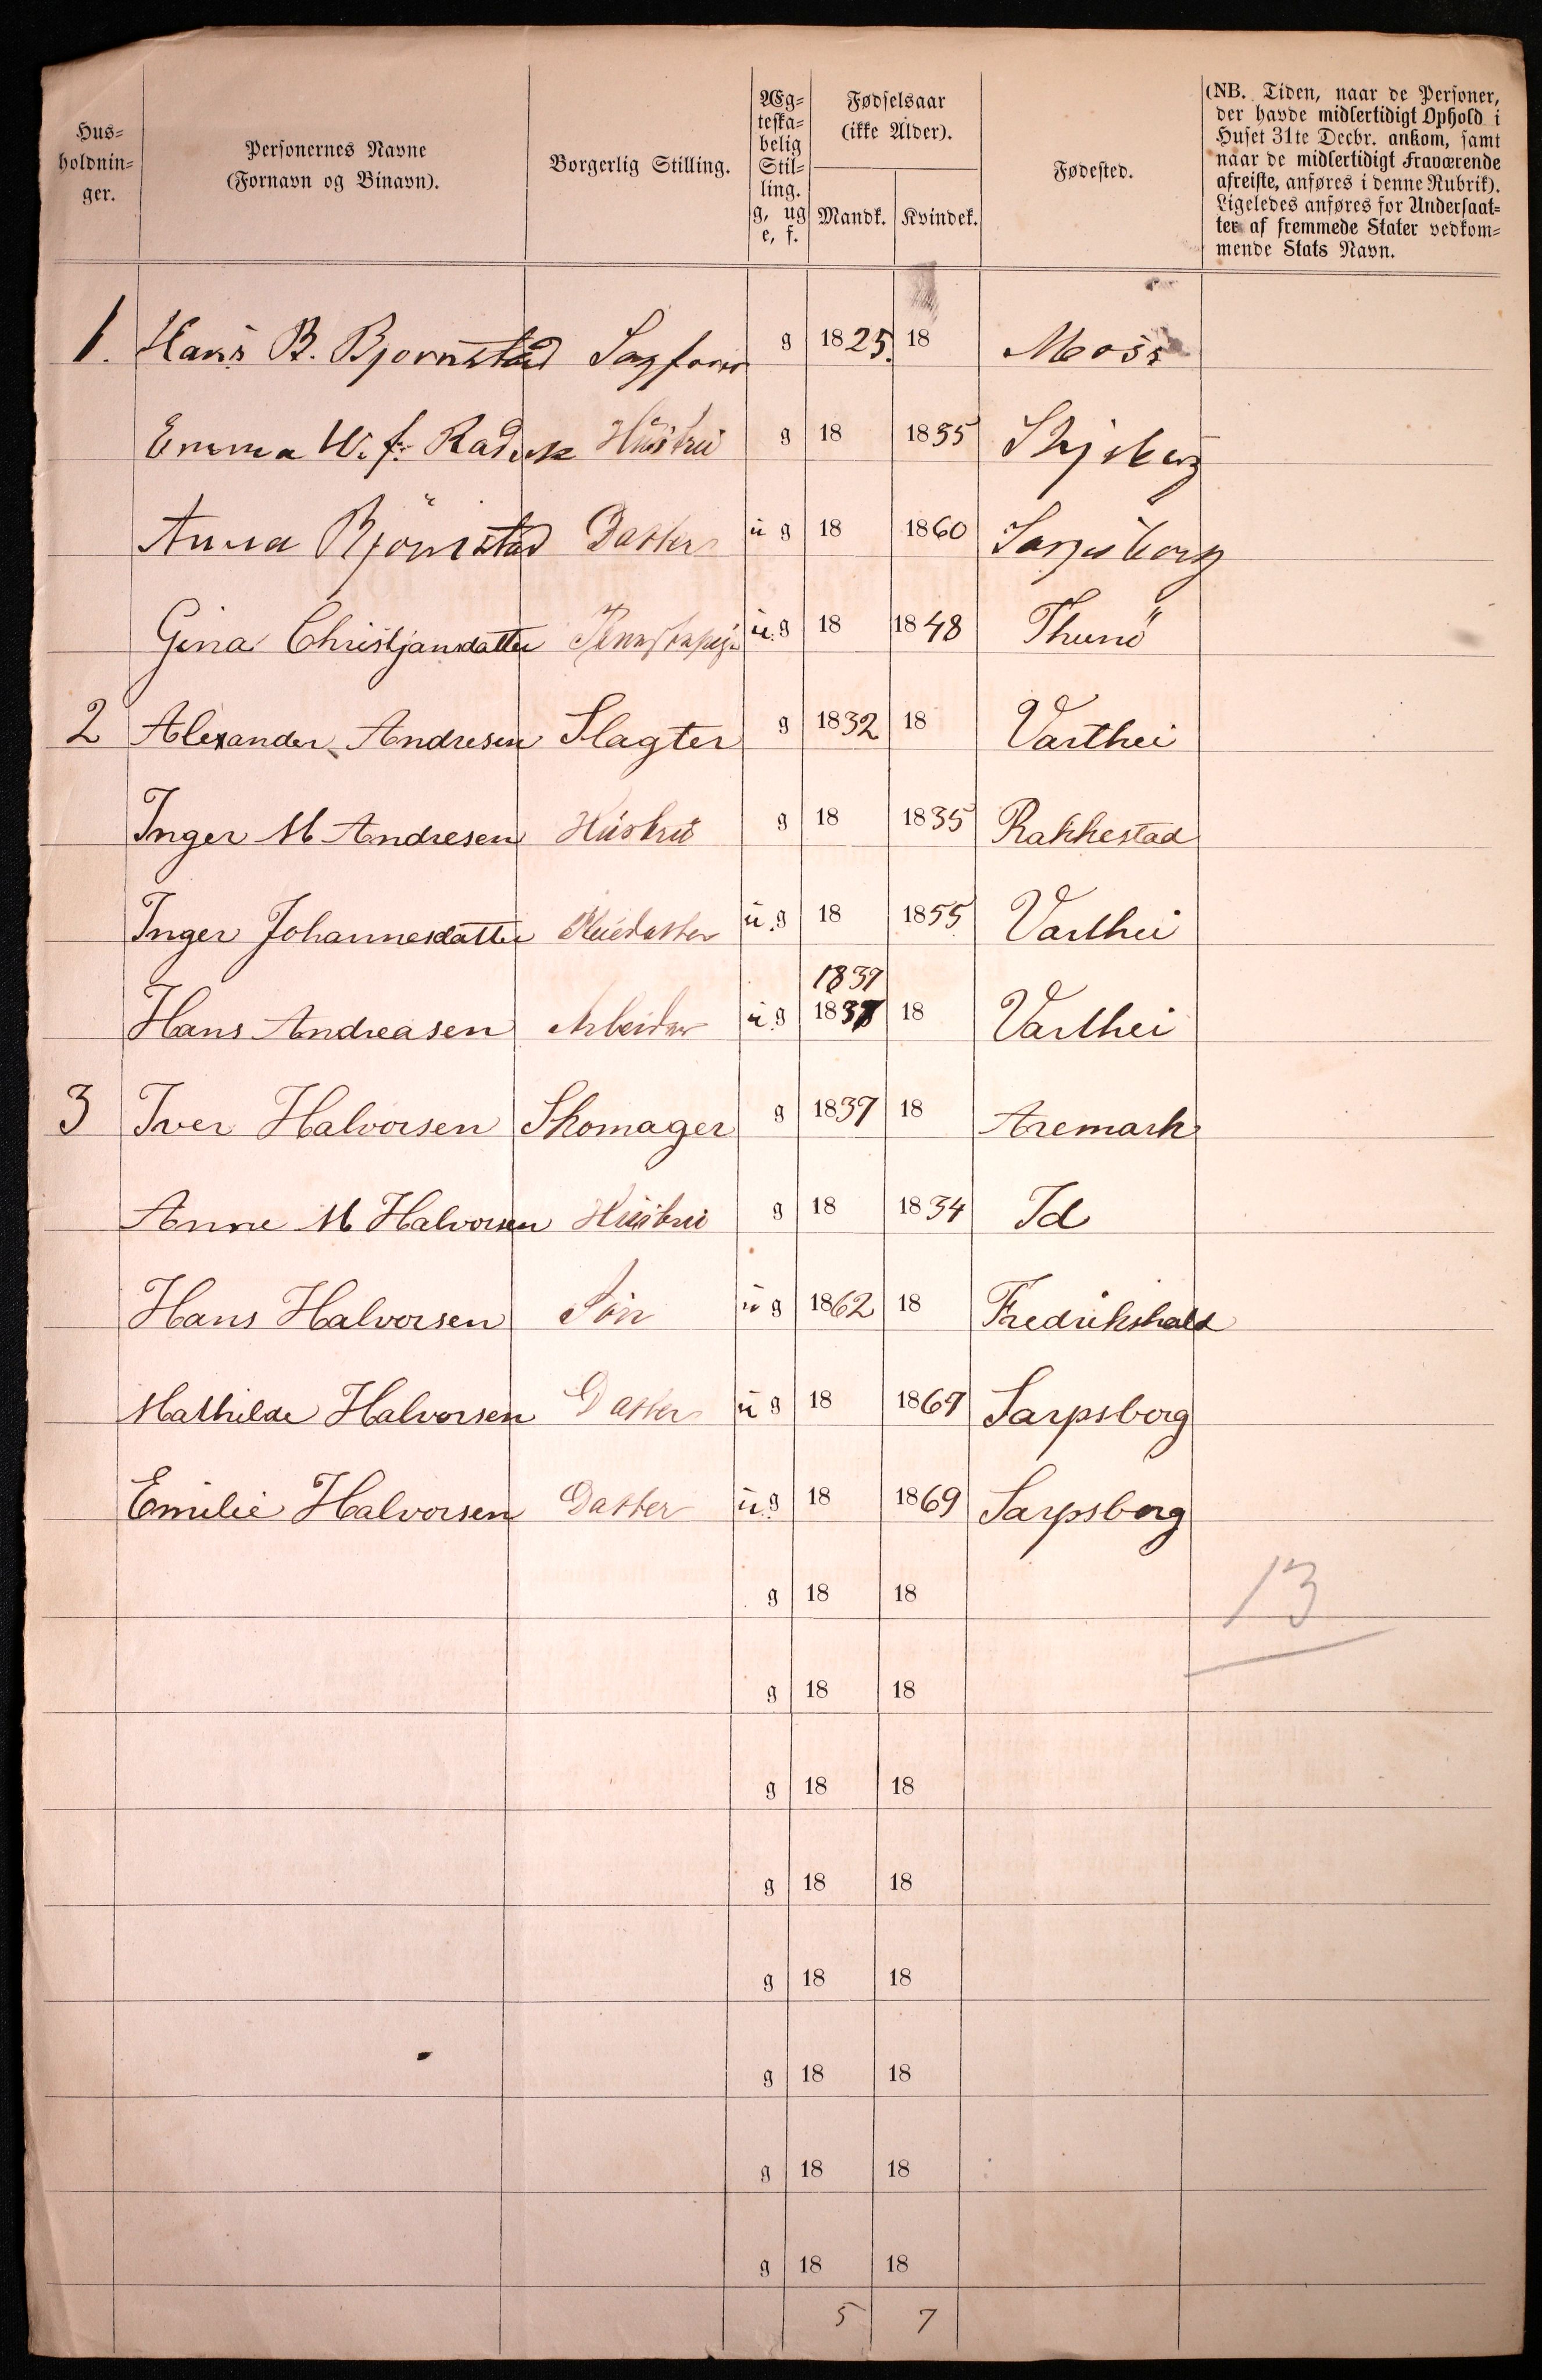 Hus-
holdnin-
ger.
Personernes Navne
(Fornavn og Binavn).
Borgerlig Stilling.
Æg-
teska-
belig
Stil-
ling.
g, ug
e, f.
Fødselsaar
(ikke Alder).
Mandk. Kvindek.
Fødested.
(NB. Tiden, naar de Personer,
der havde midlertidigt Ophold i
Huset 31te Decbr. ankom, samt
naar de midlertidigt Fraværende
afreiste, anføres i denne Rubrik).
Ligeledes anføres for Undersaat-
ter af fremmede Stater vedkom-
mende Stats Navn.
1. Hans B. Bjornstad g 1825. 18 Moss
Emma W. f. Hustru g 18 1835 Skjeberg
Anna Björnstad Datter ug 18 1860 Sarpsborg
Gina Christjansdatter u.g 18 1848 Thunö
2 Alexander Andresen Slagter g 1832 18 Varthei
Inger M Andresen Hustru g 18 1835 Rakkestad
Inger Johannesdatter u.g 18 1855 Varthei
1839
Hans Andreasen Arbeider u.g 1837 18 Varthei
3 Iver Halvorsen Skomager g 1837 18 Aremark
Anne M Halvorsen Hustru g 18 1834 Id
Hans Halvorsen Sön ug 1862 18 Fredrikshald
Mathilde Halvorsen Datter ug 18 1867 Sarpsborg
Emilie Halvorsen Datter u.g 18 1869 Sarpsborg
g 18 18 13
g 18 18
g 18 18
g 18 18
g 18 18
g 18 18
g 18 18
g 18 18
5 7